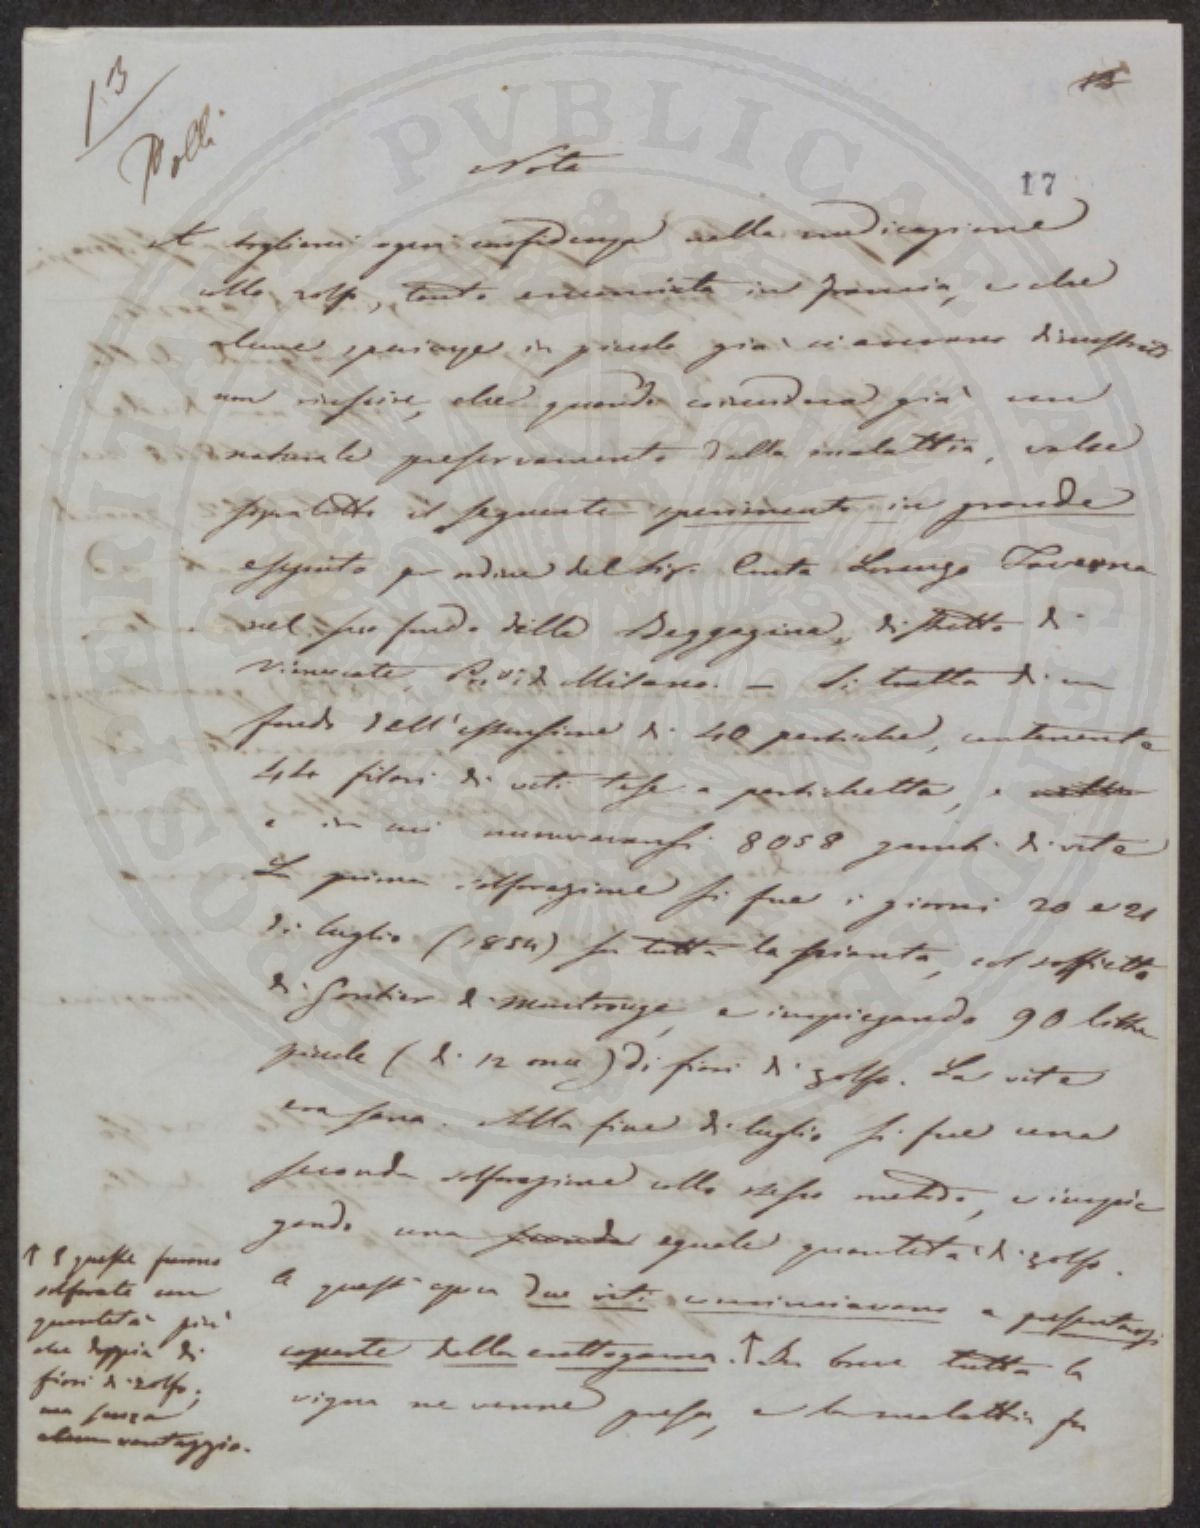 13
Polli
15
Nota
17
A toglierci ogni confidenza nella medicazione
collo zolfo, tanto encomiata in Francia, e che
alcune sperienze in piccolo già ci avevano dimostrato
non riuscire, che quando coincideva già un
naturale preservamento dalla malattia, valse
sopratutto il seguente sperimento in grande
eseguito per ordine del Sig. Conte Lorenzo Taverna
nel suo fondo della Bazzagina, distretto di
Vimercate, Prov. di Milano. — Si tratta di un
fondo dell'estensione di 40 pertiche, contenente
44 filari di viti tese a pertichetta, e
e in cui numeravansi 8058 gambi di vite
La prima solforazione si fece i giorni 20 e 21
di luglio (1854) su tutta la pianta, col soffietto
di Gontier di Montrouge, e impiegando 90 libbre
piccole (di 12 once) di fiori di zolfo. La vite
era sana. Alla fine di luglio si fece una
seconda solforazione collo stesso metodo, e impie
gando una seconda eguale quantità di zolfo.
A quest'epoca due viti cominciavano a presentarsi
coperte della crittogama.↑ In breve tutta la
vigna ne venne presa, e la malattia fu
↑ E queste furono
solforate con
quantità più
che doppia di
fiori di zolfo,
ma senza
alcun vantaggio.